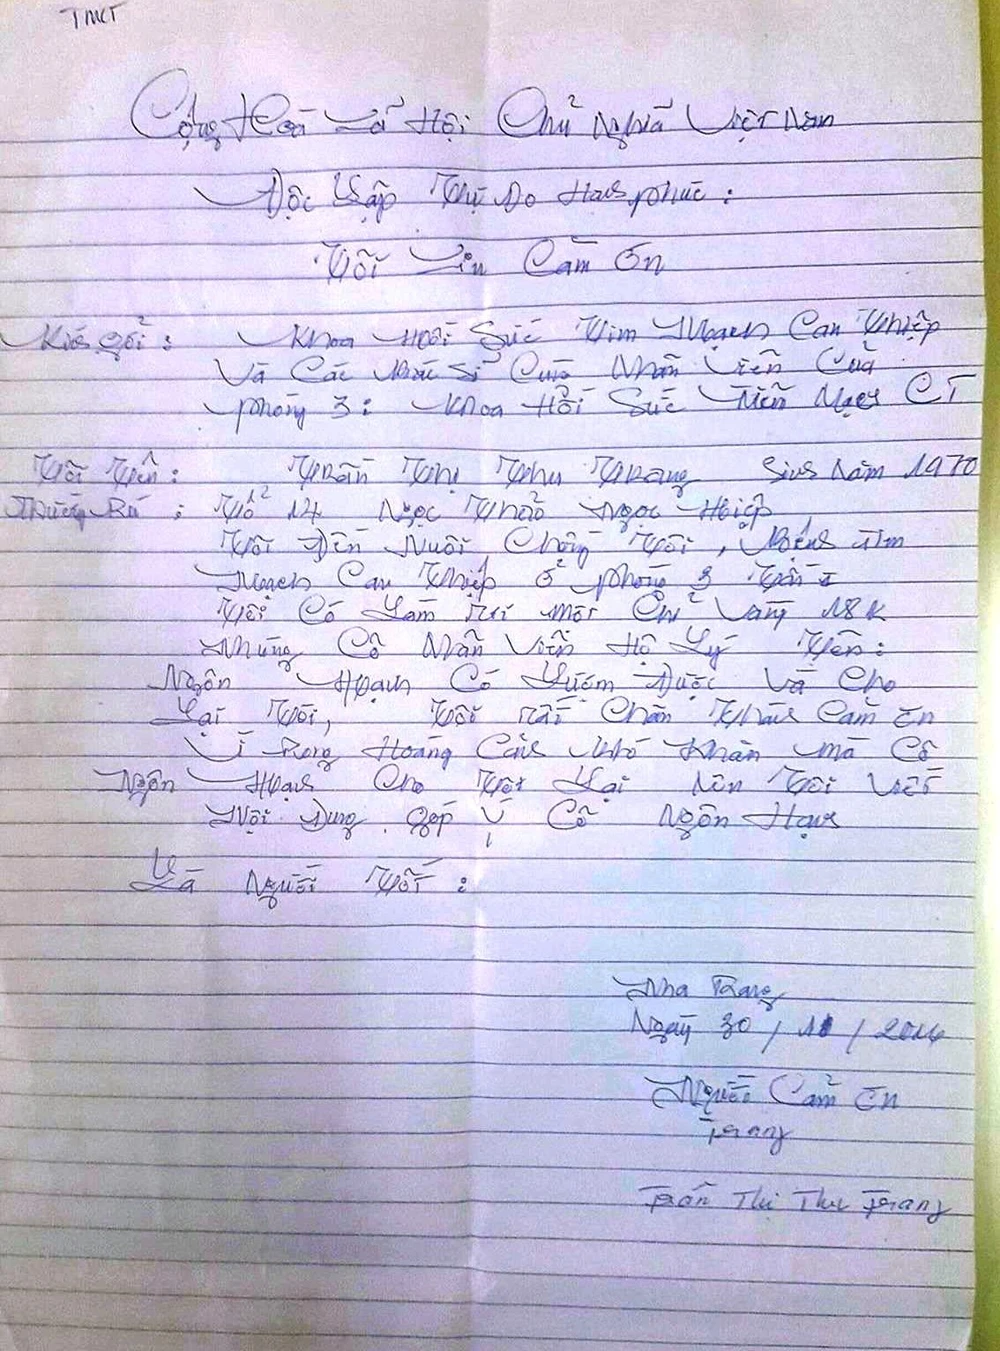 TMCT
Cộng Hoà Xã Hội Chủ Nghĩa Việt Nam
Độc Lập Tự Do Hanh phúc :
Tôi Xin Cảm Ơn
Kính gởi : Khoa Hồi Sức Tim Mạch Can Thiệp
Và Các Bác Sĩ Cùng Nhân Viên Của
phòng 3 : Khoa Hồi Sức Mạch CT
Tôi Tên : Trần Thị Thu Trang Sinh Năm 1970
Thường Trú : Tổ 14 Ngọc Thảo Ngọc Hiệp
Tôi Đến Nuôi Chồng Tôi, Bệnh Tim
Mạch Can Thiệp Ở phòng 3
Tôi Có Làm Một Chỉ Vàng 18 K
Nhưng Cô Nhân Viên Hộ Lý Tên :
Ngôn Hạnh Có Lượm Được Và Cho
Lại Tôi, Tôi rất Chân Thành Cảm Ơn
Vì Trong Hoàng Cảnh Khó Khăn mà Cô
Ngôn Hạnh Cho Tôi Lại Nên Tôi Viết
Nội Dung góp Ý Cô Ngôn Hạnh
Là Người Tốt :
Nha Trang
Ngày 30 / / 2014
Người Cảm Ơn
Trang
Trần Thị Thu Trang